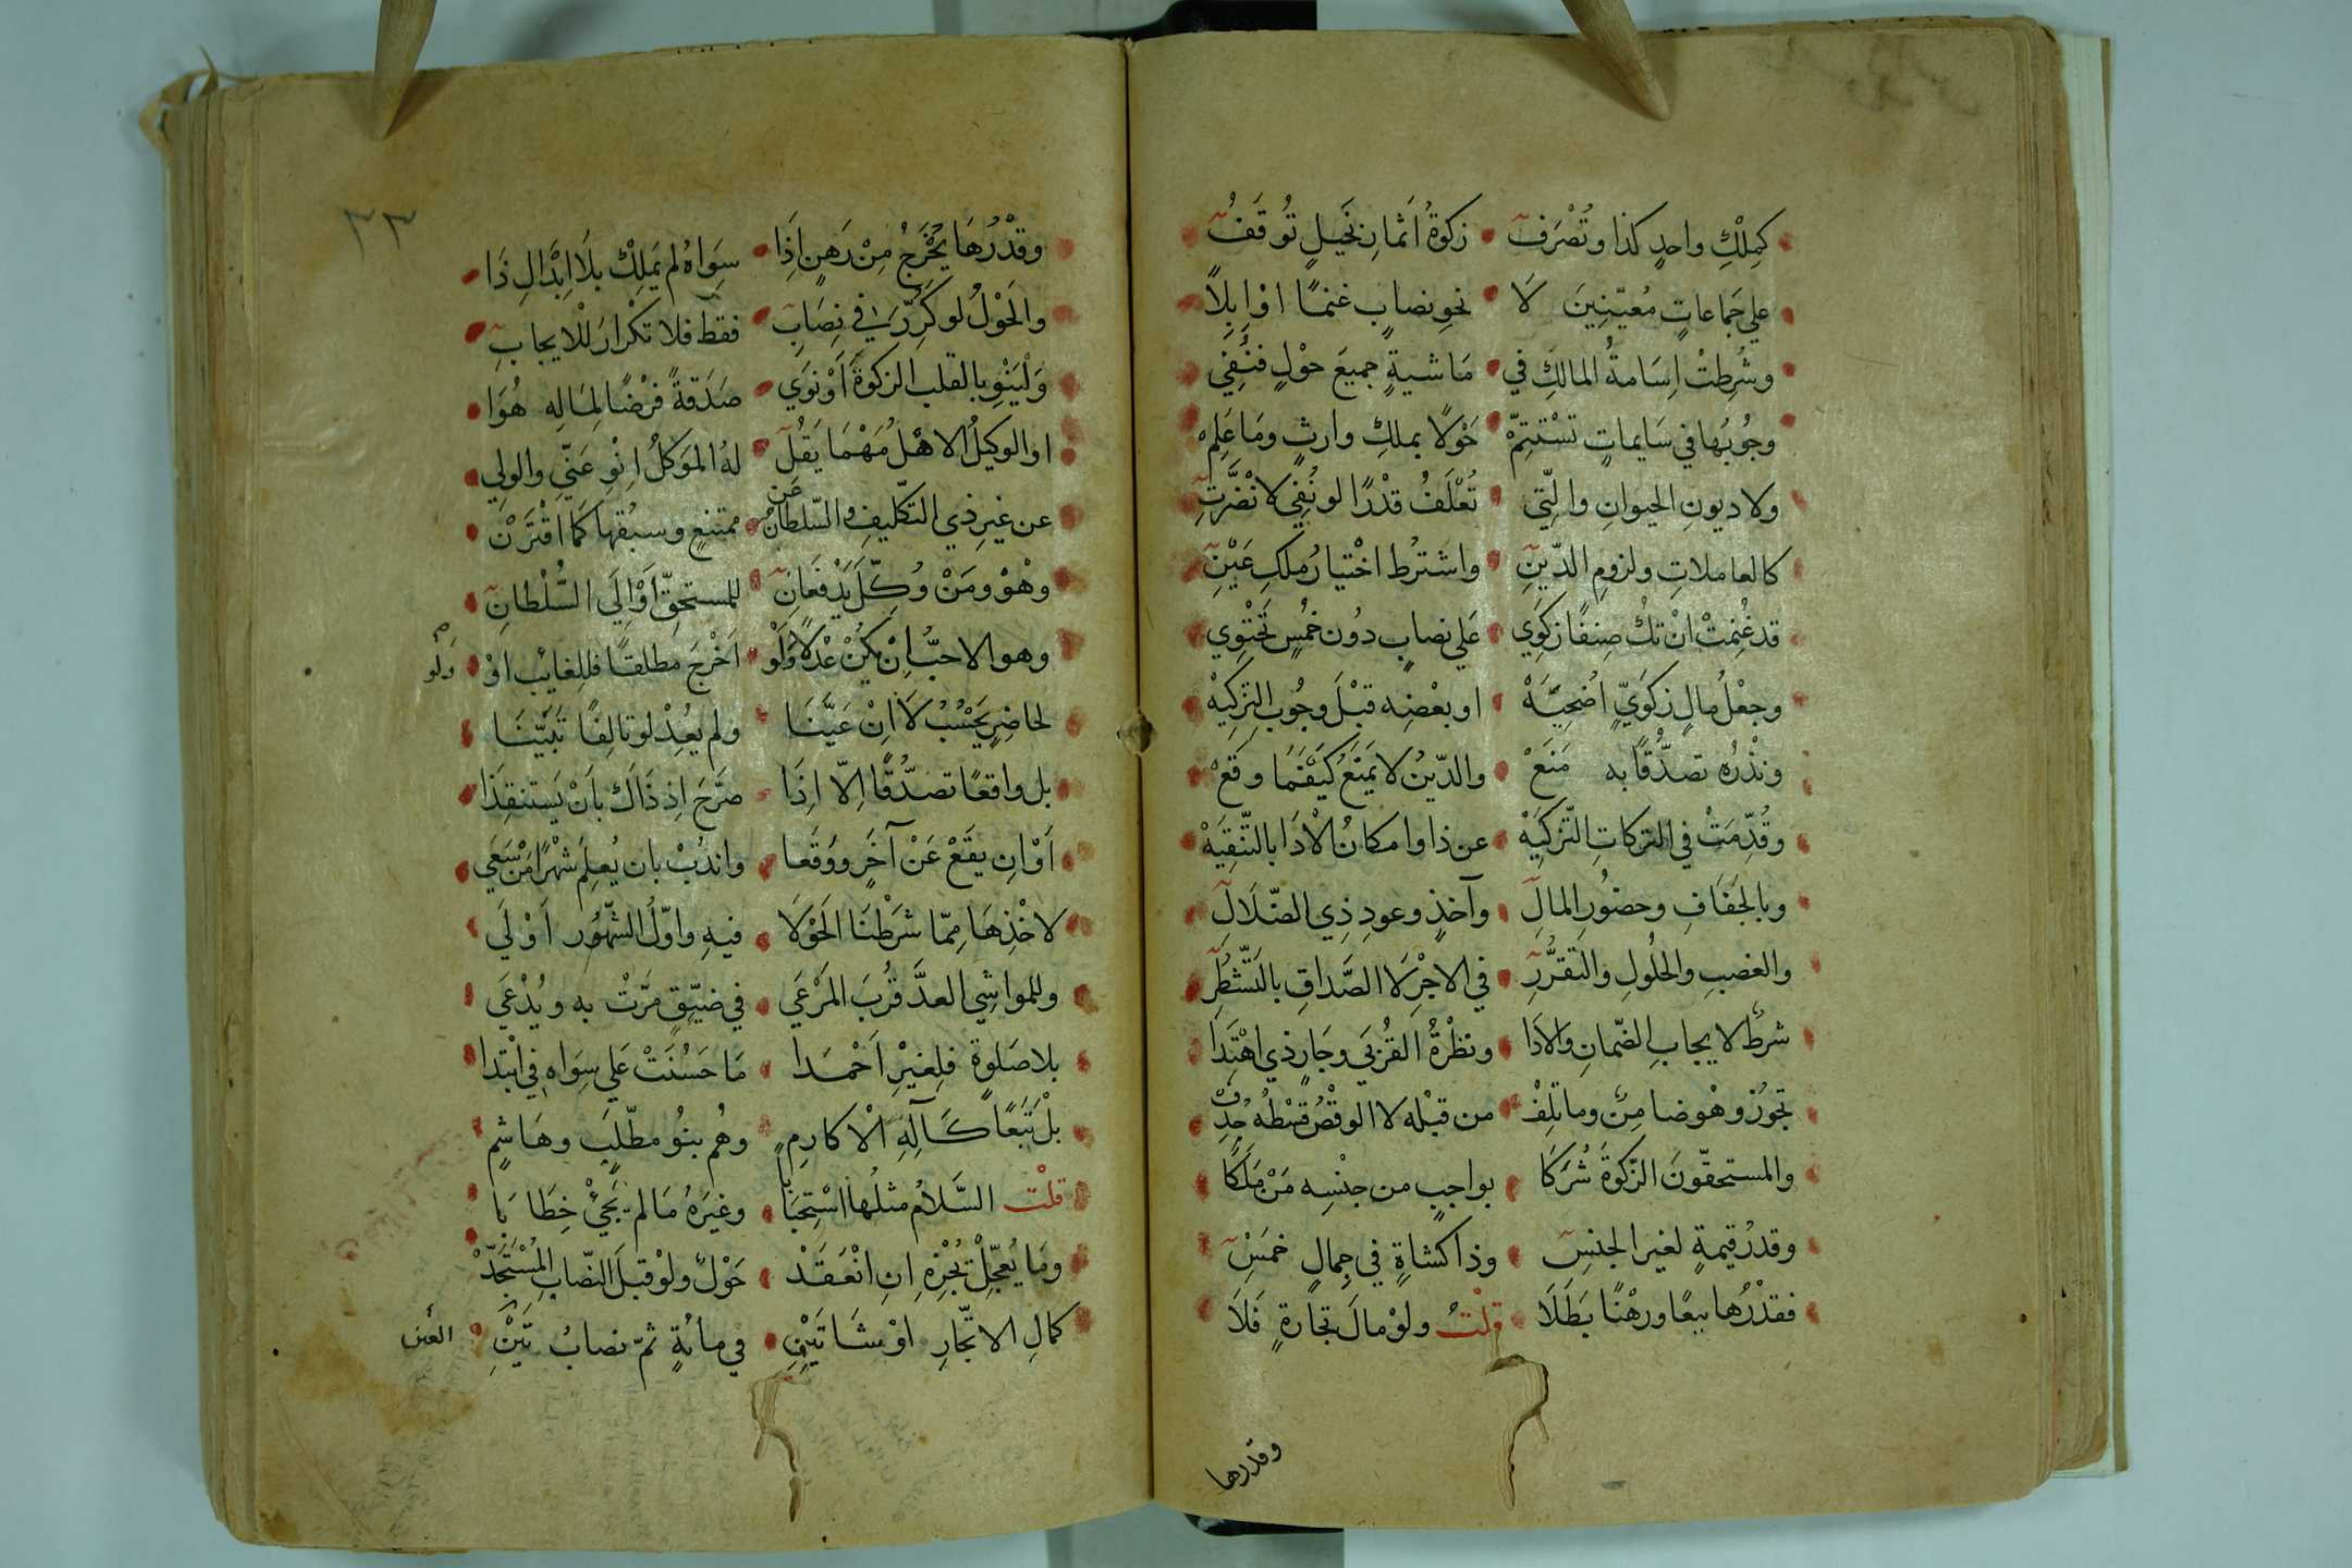 كمِلْكِ واحدٍ كذا وتُصْرَفُ • زكوةُ اَثمارِ نخيلٍ تُوقَفُ
علي جَماعاتٍ مُعيّنِينَ لَا • نحوِ نصابٍ غنمًا اوْ اِبِلًا
وشُرِطتْ اِسَامةُ المالكِ في • مَاشيةٍ جميعَ حوْلٍ فنُفِي
وجُوبُها في سَايماتٍ تسْتَتِمّْ • حَوْلًا بملكِ وارثٍ ومَا عَلِمْ
ولا ديونِ الحيوانِ والّتِي • تُعْلَفُ قدْرًا لو نُفِي لانْضَرَّتِ
كالعاملاتِ ولزومِ الدّيْنِ • واشترُط اخْتيارُ ملكِ عَيْنِ
قد غُنِمتْ انْ تكُ صِنفًا زكَوِي • علي نصابٍ دُون خُمْسٍ تحْتوِي
وجعْلُ مالٍ زكَوِيٍّ اُضحِيَّهْ • او بعْضِه قبْلَ وجُوبِ التزكِيهْ
ونذْرُه تصدّقًا به مَنَعْ • والدّينُ لا يَمنَعُ كَيْفَمَا وقعْ
وقُدِّمَتْ في التركاتِ التّزكيَهْ • عن ذا وامكانُ الْاَدَا بالتّنقِيَهْ
وبالجَفَافِ وحضُورِ المالِ • وآخذٍ وعودِ ذِي الضّلَالِ
والغصبِ والحلُولِ والتقرُّرِ • في الاجْرِ لَا الصَّداقِ بالتّشطُرِ
شرطٌ لايجابِ الضّمانِ والاَدَا • ونظْرةُ القُرْبَي وجَارٍ ذي اهْتِدَا
تجوُز وهْو ضامِنٌ وما تَلِفْ • من قبْله لا الوقْصُ قسْطُهُ حُذِفْ
والمستحقّونَ الزّكوةَ شُرَكَا • بواجبٍ من جنْسِه مَنْ مَلَكَا
وقدرُ قيمةٍ لغير الجنسِ • وذا كشاةٍ في جِمالٍ خمَسْ
فقدْرُها بيعًا ورهْنًا بَطَلَا • قلْتُ ولوْ مالَ تجارةٍ فَلَا
وقدرها
٣٣
وقدْرُهَا يُخْرَجُ مِنْ رَهنٍ اِذَا • سِوَاهُ لم يَمْلِكْ بلَا اِبْدَالِ ذَا
والحَوْلُ لو كَرَّرَ في نِصَابِ • فقطْ فلا تكْرارَ للْايجابِ
وَلْيَنْوِ بالقلبِ الزكوةَ اَوْ نوَي • صَدَقةً فرْضًا لِمَالِهِ هُوَا
او الوكيلُ الاهْلُ مَهْمَا يَقُلِ • لهُ الموَكلُ اِنْوِ عَنّي والولِي
عن غيرِ ذي التكليفِ والسّلطانُ عَن • ممتنعٍ وسبْقُها كَمَا اقْتَرَنْ
وهْوَ ومَنْ وُكِّلَ يَدْفَعانِ • للمستحقِّ اَوْ اِلَي السُّلْطانِ
وهو الاحبُّ اِنْ يكُنْ عدْلًا ولَوْ • اَخْرَجَ مطلقًا فللغايبِ اوْ
ولو
لحاضرٍ يَحْسُبْ لَا اِنْ عَيَّنَا • ولم يعُدْ لو تالِفًا تَبَيَّنَا
بل واقعًا تصدّقًا اِلّا اِذَا • صَرَّحَ اِذ ذَاكَ بِاَنْ يَستنقِذَا
اَوْ اِن يقَعْ عَنْ آخَرٍ ووُقعا • واندُبْ بان يُعلِمَ شهْرًا مَنْ سَعَي
لاخْذِهَا مِمّا شَرَطْنَا الحَوْلَا • فيهِ واوّلُ الشّهُور اَوْلَي
وللمواشِي العدَّ قُربَ المَرْعَي • في ضيّقٍ مَرّتْ به ويُدْعَي
بلا صَلوةٍ فلِغيْرِ اَحْمَدا • مَا حَسُنَتْ عَلي سِوَاهِ في ابْتِدا
بلْ تَبَعًا كَآلِهِ الْاكارِمِ • وهُم بنُو مطّلِبٍ وهَاشمِ
قلْت السَّلامُ مثلُها اسْتِحبَابا • وغيَرُهُ مَا لم يَجِيْ خِطَابَا
ومَا يُعجِّلْ تُجْزِهِ اِنِ انْعقَدْ • حَوْلٌ ولوْ قبلَ النّصَابِ المُسْتَجَدّْ
كمالِ الاتّجارِ اوْ شَاتَيْنِ • في مائةٍ ثمّ نصابُ تَيْنِ